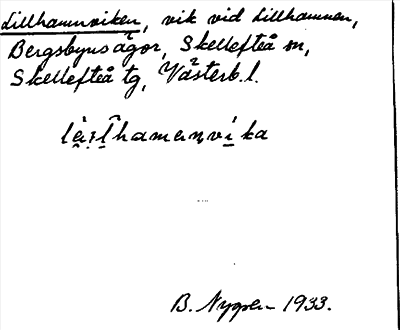 Lillhamnviken, vik vid Lillhamnen,
Bergsbyns ägor, Skellefteå sn,
Skellefteå tg, Västerb. l.
B. Nygren 1933.